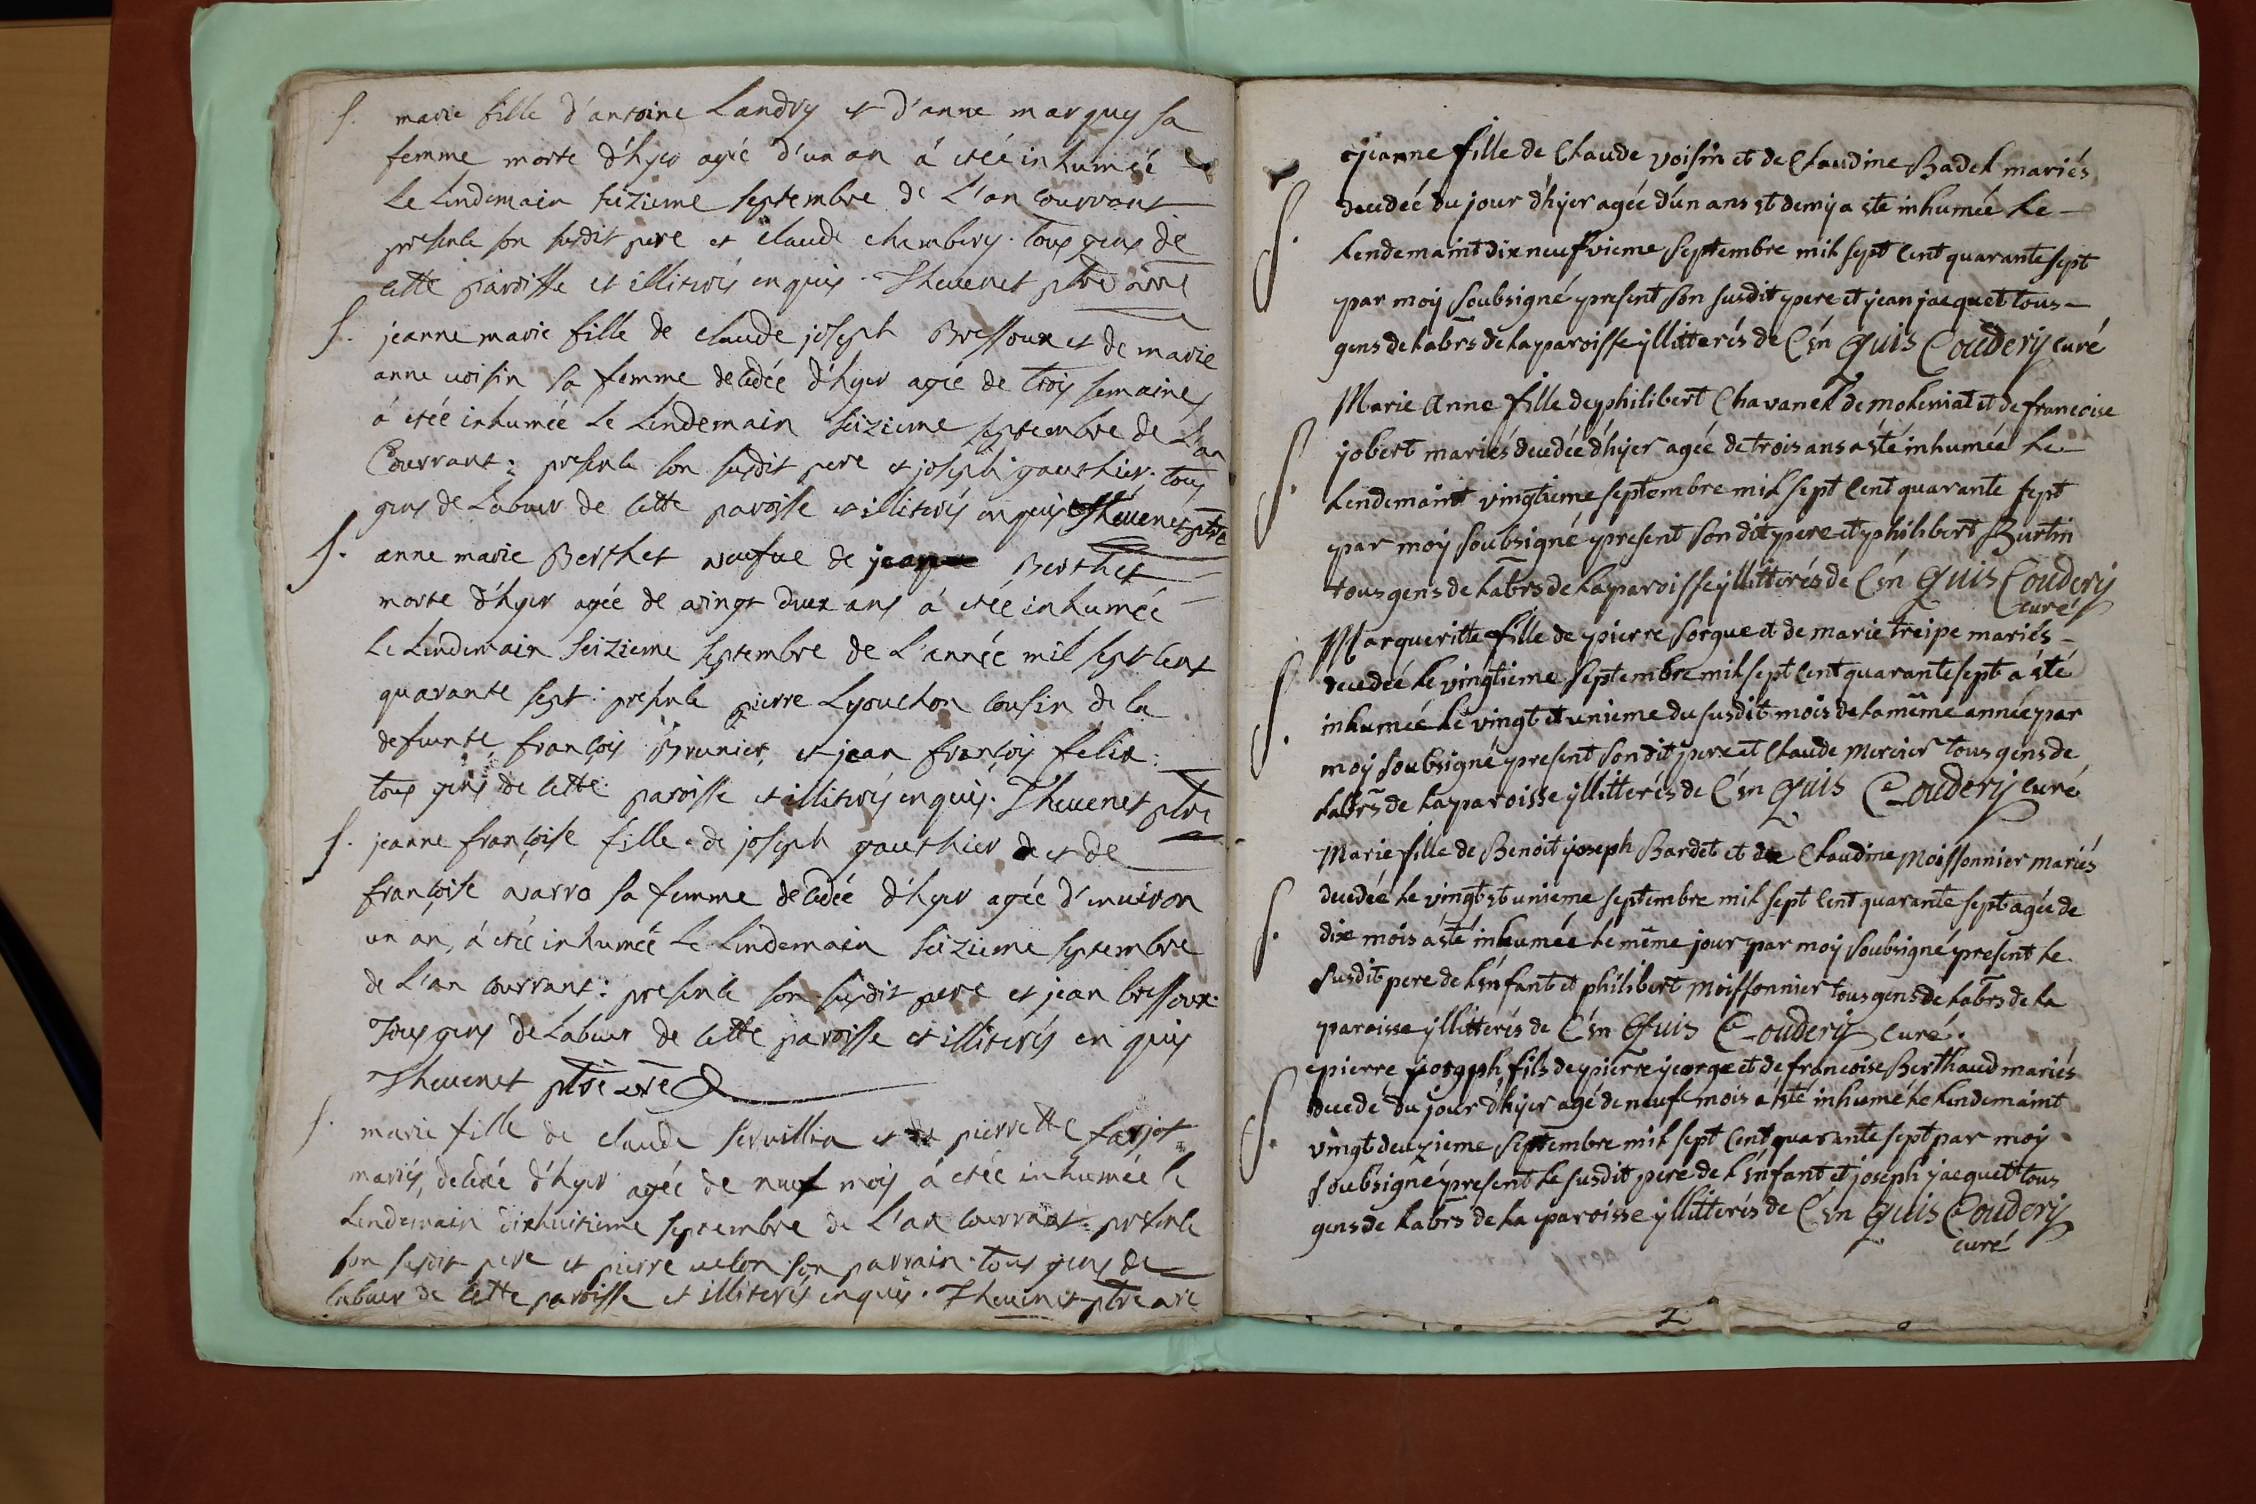 S. marie fille d'antoine Landry et d'anne marquy sa
femme morte d'hyer agée d'un an á etée inhumée
Le Lendemain seizieme septembre de L'an courrant
presente son susdit pere et claude chambery. Tous gens de
cette paroisse et illiterés enquis. Thevenet ptre
S. jeanne marie fille de claude joseph Bressoux et de marie
anne voisin sa femme decedée d'hyer agée de trois semaines
á etée inhumée Le Lendemain seizieme septembre de L'an
Courrant: presente son susdit pere et joseph gauthier. tous
gens de Labeur de cette paroisse et illiterés enquis Thevenet ptre
S. anne marie Berthet veufve de Berthet
morte d'hyer agée de vingt deux ans á etée inhumée
Le Lendemain seizieme septembre de L'année mil sept cent
quarante sept: presente pierre Lyouchon cousin de la
defunte, françois Brunier, et jean françois felix:
tous gens de cette paroisse et illiterés enquis. Thevenet ptre
S. jeanne françoise fille de joseph gauthier et de
françoise varro sa femme decedée d'hyer agée d'environ
un an, á etée inhumée Le Lendemain seizieme septembre
de L'an courrant: presente son susdit pere et jean bressoux:
Tous gens de Labeur de cette paroisse et illiterés en quis
Thevenet ptre
S. marie fille de claude servillia et de pierrette farjot
mariés, decedée d'hyer agée de neuf mois á etée inhumée le
Lendemain dixhuitieme septembre de L'an courrant: presente
son susdit pere et pierre velon son parrain. tous gens de
labeur de cette paroisse et illiterés enquis. Thevenet ptre
jeanne fille de Claude voisin et de Claudine Badel mariés
S. decedée du jour d'hijer agée d'un ans et demy a eté inhumée Le
Lendemaint dix neufvieme septembre mil sept Cent quarante sept
par moÿ soubsigné present son susdit pere et jean jacquet tous
gens de Labrs de La paroisse ÿllitterés de C'én Quis Couderÿ curé
Marie Anne fille de philibert Chavanel de et de francoise
S. jobert mariés decedée d'hijer agée de trois ans a eté inhumée Le
Lendemaint vingtieme septembre mil sept Cent quarante sept
par moÿ soubsigné present son dit pere et philibert Burtin
tous gens de Labrs de La paroisse ÿllitterés de C'én Quis Couderÿ
curé
Margueritte fille de pierre sorgue et de marie treipe mariés
S. decedée Le vingtieme septembre mil sept Cent quarante sept a eté
inhumée Le vingt et unieme du susdit mois de La même année par
moÿ soubsigné present son dit pere et Claude mercier tous gens de
Labrs de La paroisse ÿllitterés de C'én Quis Couderÿ curé
Marie fille de Benoit joseph Bardet et de Claudine Moissonnier mariés
S. decedée Le vingt et unieme septembre mil sept Cent quarante sept agée de
dix mois a eté inhumée Le même jour par moÿ soubsigné present Le
susdit pere de L'énfant et philibert moissonnier tous gens de Labrs de La
paroisse ÿllitterés de C'én Quis Couderÿ curé.
pierre joseph fils de pierre jeorge et de francoise Berthaud mariés
S. decedé du jour d'hijer agé de neufe mois a eté inhumé Le Lendemaint
vingt deuzieme septembre mil sept Cent quarante sept par moÿ
soubsigné present Le susdit pere de L'énfant et joseph jacquet tous
gens de Labrs de La paroisse ÿllitterés de C'én Quis Couderÿ
curé